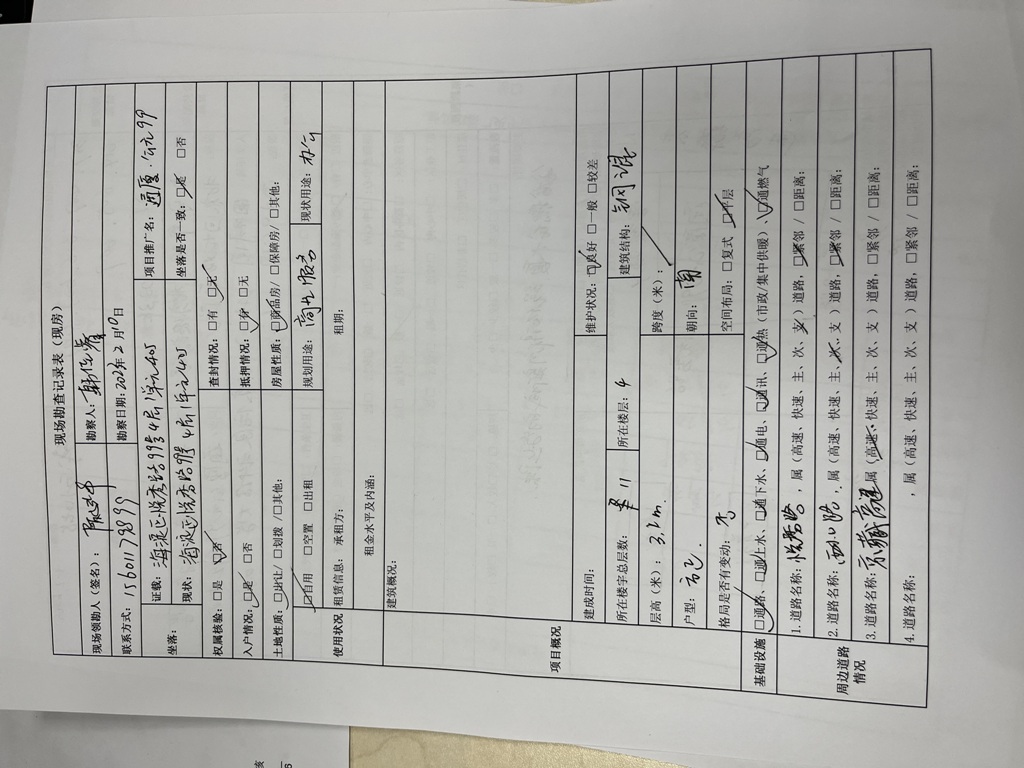 现场勘查记录表（现房）
现场领勘人（签名）： 勘察人：
联系方式：15601178899 勘察日期：2025年2月10日
坐落： 证载：海淀区悦秀路99号4层1单元405 项目推广名：远厦·公元99
现状：海淀区悦秀路99号4层1单元405 坐落是否一致：☑是 □否
权属核验：□是 ☑否 查封情况：□有 ☑无
入户情况：☑是 □否 抵押情况：☑有 □无
土地性质：☑出让/ □划拨 /□其他： 房屋性质：☑商品房/ □保障房/ □其他：
使用状况 ☑自用 □空置 □出租 规划用途：商业服务 现状用途：办公
租赁信息： 承租方： 租期：
租金水平及内涵：
项目概况
建筑概况：
建成时间： 维护状况：☑良好 □一般 □较差
所在楼宇总层数：11 所在楼层：4 建筑结构：钢混
层高（米）：3.1m 跨度（米）：/
户型： 朝向：南
格局是否有变动：否 空间布局：□复式 ☑平层
基础设施 ☑通路、☑通上水、☑通下水、☑通电、☑通讯、☑通热（市政/集中供暖）、☑通燃气
周边道路情况
1.道路名称：悦秀路，属（高速、快速、主、次、支）道路，☑紧邻 / □距离：
2.道路名称：西小口路，属（高速、快速、主、次、支）道路，☑紧邻 / □距离：
3.道路名称：京藏高速，属（高速、快速、主、次、支）道路，□紧邻 / □距离：
4.道路名称： ，属（高速、快速、主、次、支）道路，□紧邻 / □距离：